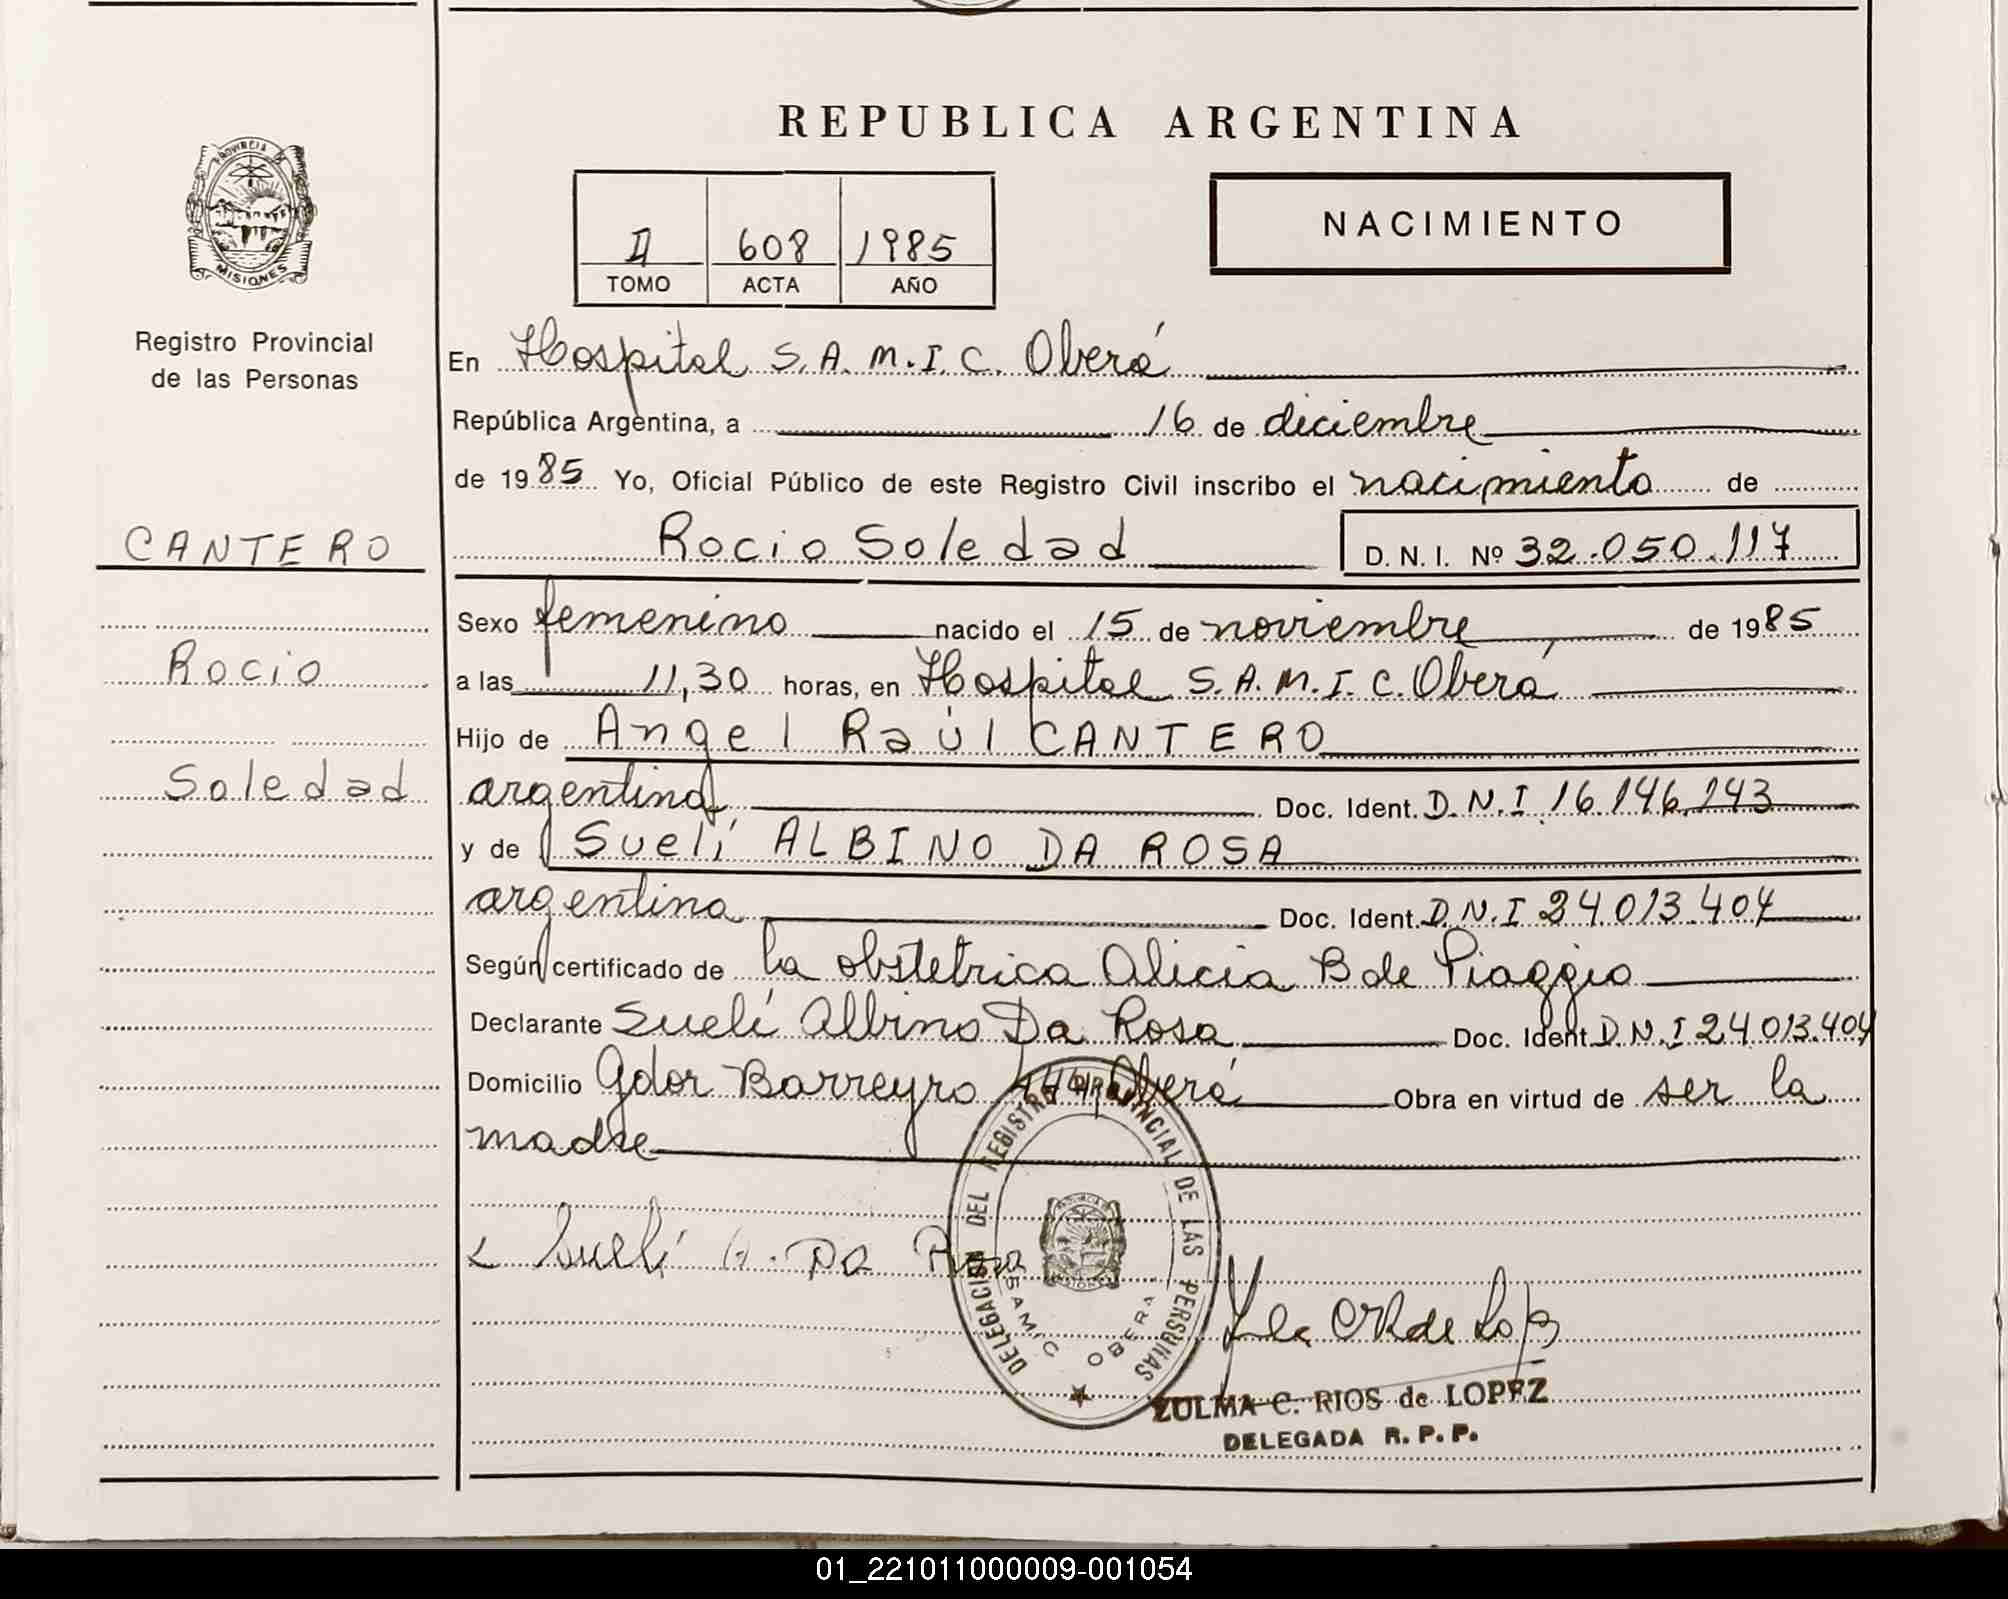 REPUBLICA ARGENTINA
PROVINCIA DE
MISIONES
Registro Provincial
de las Personas
II 608 1985
TOMO ACTA AÑO
NACIMIENTO
En Hospital S.A.M.I.C. Oberá
República Argentina, a 16 de diciembre
de 1985 Yo, Oficial Público de este Registro Civil inscribo el nacimiento de
CANTERO
Rocio Soledad D. N. I. Nº 32.050.117
Sexo femenino nacido el 15 de noviembre de 1985
Rocio
a las 11,30 horas, en Hospital S.A.M.I.C. Oberá
Hijo de Angel Raúl CANTERO
Soledad
argentina Doc. Ident. D.N.I 16.146.143
y de Suelí ALBINO DA ROSA
argentina Doc. Ident. D.N.I 24.013.404
Según certificado de la obstetrica Alicia B de Piaggio
Declarante Suelí Albino Da Rosa Doc. Ident. D.N.I 24.013.404
Domicilio Gdor Barreyro 444, Oberá Obra en virtud de ser la
madre
Suelí A. Da Rosa
DELEGACION DEL REGISTRO PROVINCIAL DE LAS PERSONAS
SAMIC OBERA
ZULMA C. RIOS de LOPEZ
DELEGADA R. P. P.
01_221011000009-001054